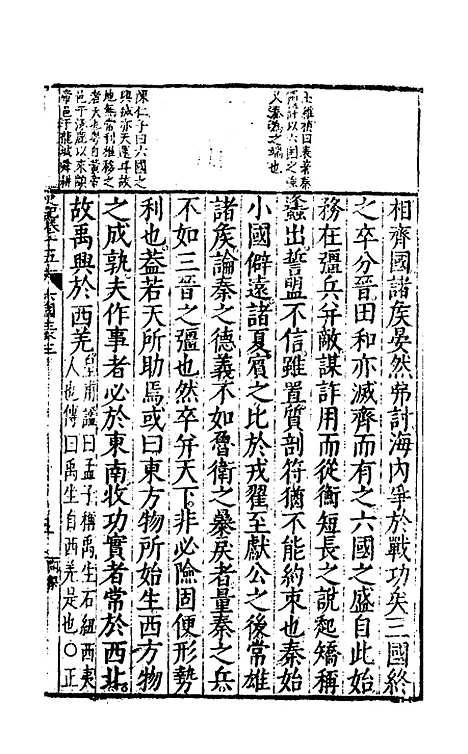 相齊國諸矦晏然弗討海內爭於戰功矣三國終
之卒分晉田和亦滅齊而有之六國之盛自此始
務在彊兵幷敵謀詐用而從衡短長之說起矯稱
蠭出誓盟不信雖置質剖符猶不能約束也秦始
小國僻遠諸夏賔之比於戎翟至獻公之後常雄
諸矦論秦之德義不如魯衛之暴戾者量秦之兵
不如三晉之彊也然卒幷天下非必險固便形勢
利也葢若天所助焉或曰東方物所始生西方物
之成孰夫作事者必於東南收功實者常於西北
故禹興於西羌皇甫謐曰孟子稱禹生石紐西夷
人也傳曰禹生自西羌是也○正
陳仁子曰六國之